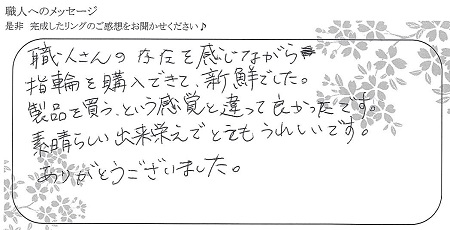 職人へのメッセージ
是非 完成したリングのご感想をお聞かせください♪
職人さんの存在を感じながら
指輪を購入できて、新鮮でした。
製品を買う、という感覚と違って良かったです。
素晴らしい出来栄えでとてもうれしいです。
ありがとうございました。